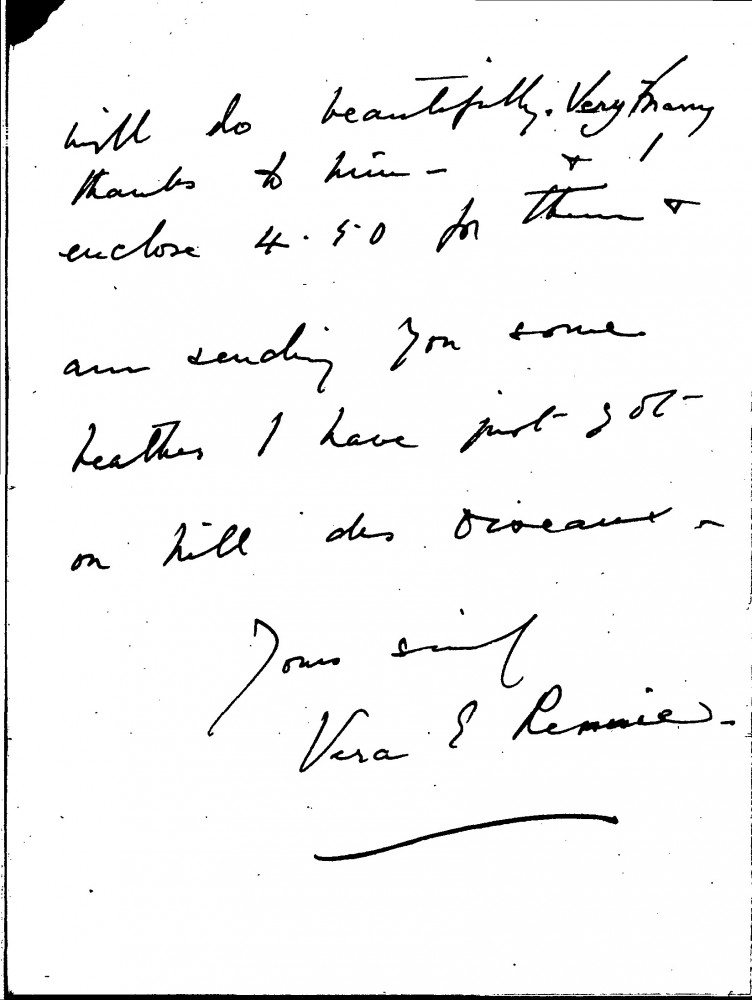 will do beautifully. Very many
thanks to him - & I
enclose 4.50 for them &
am sending you some
heather I have just got -
on hill des Oiseaux -
Yours
Vera E Rennie.